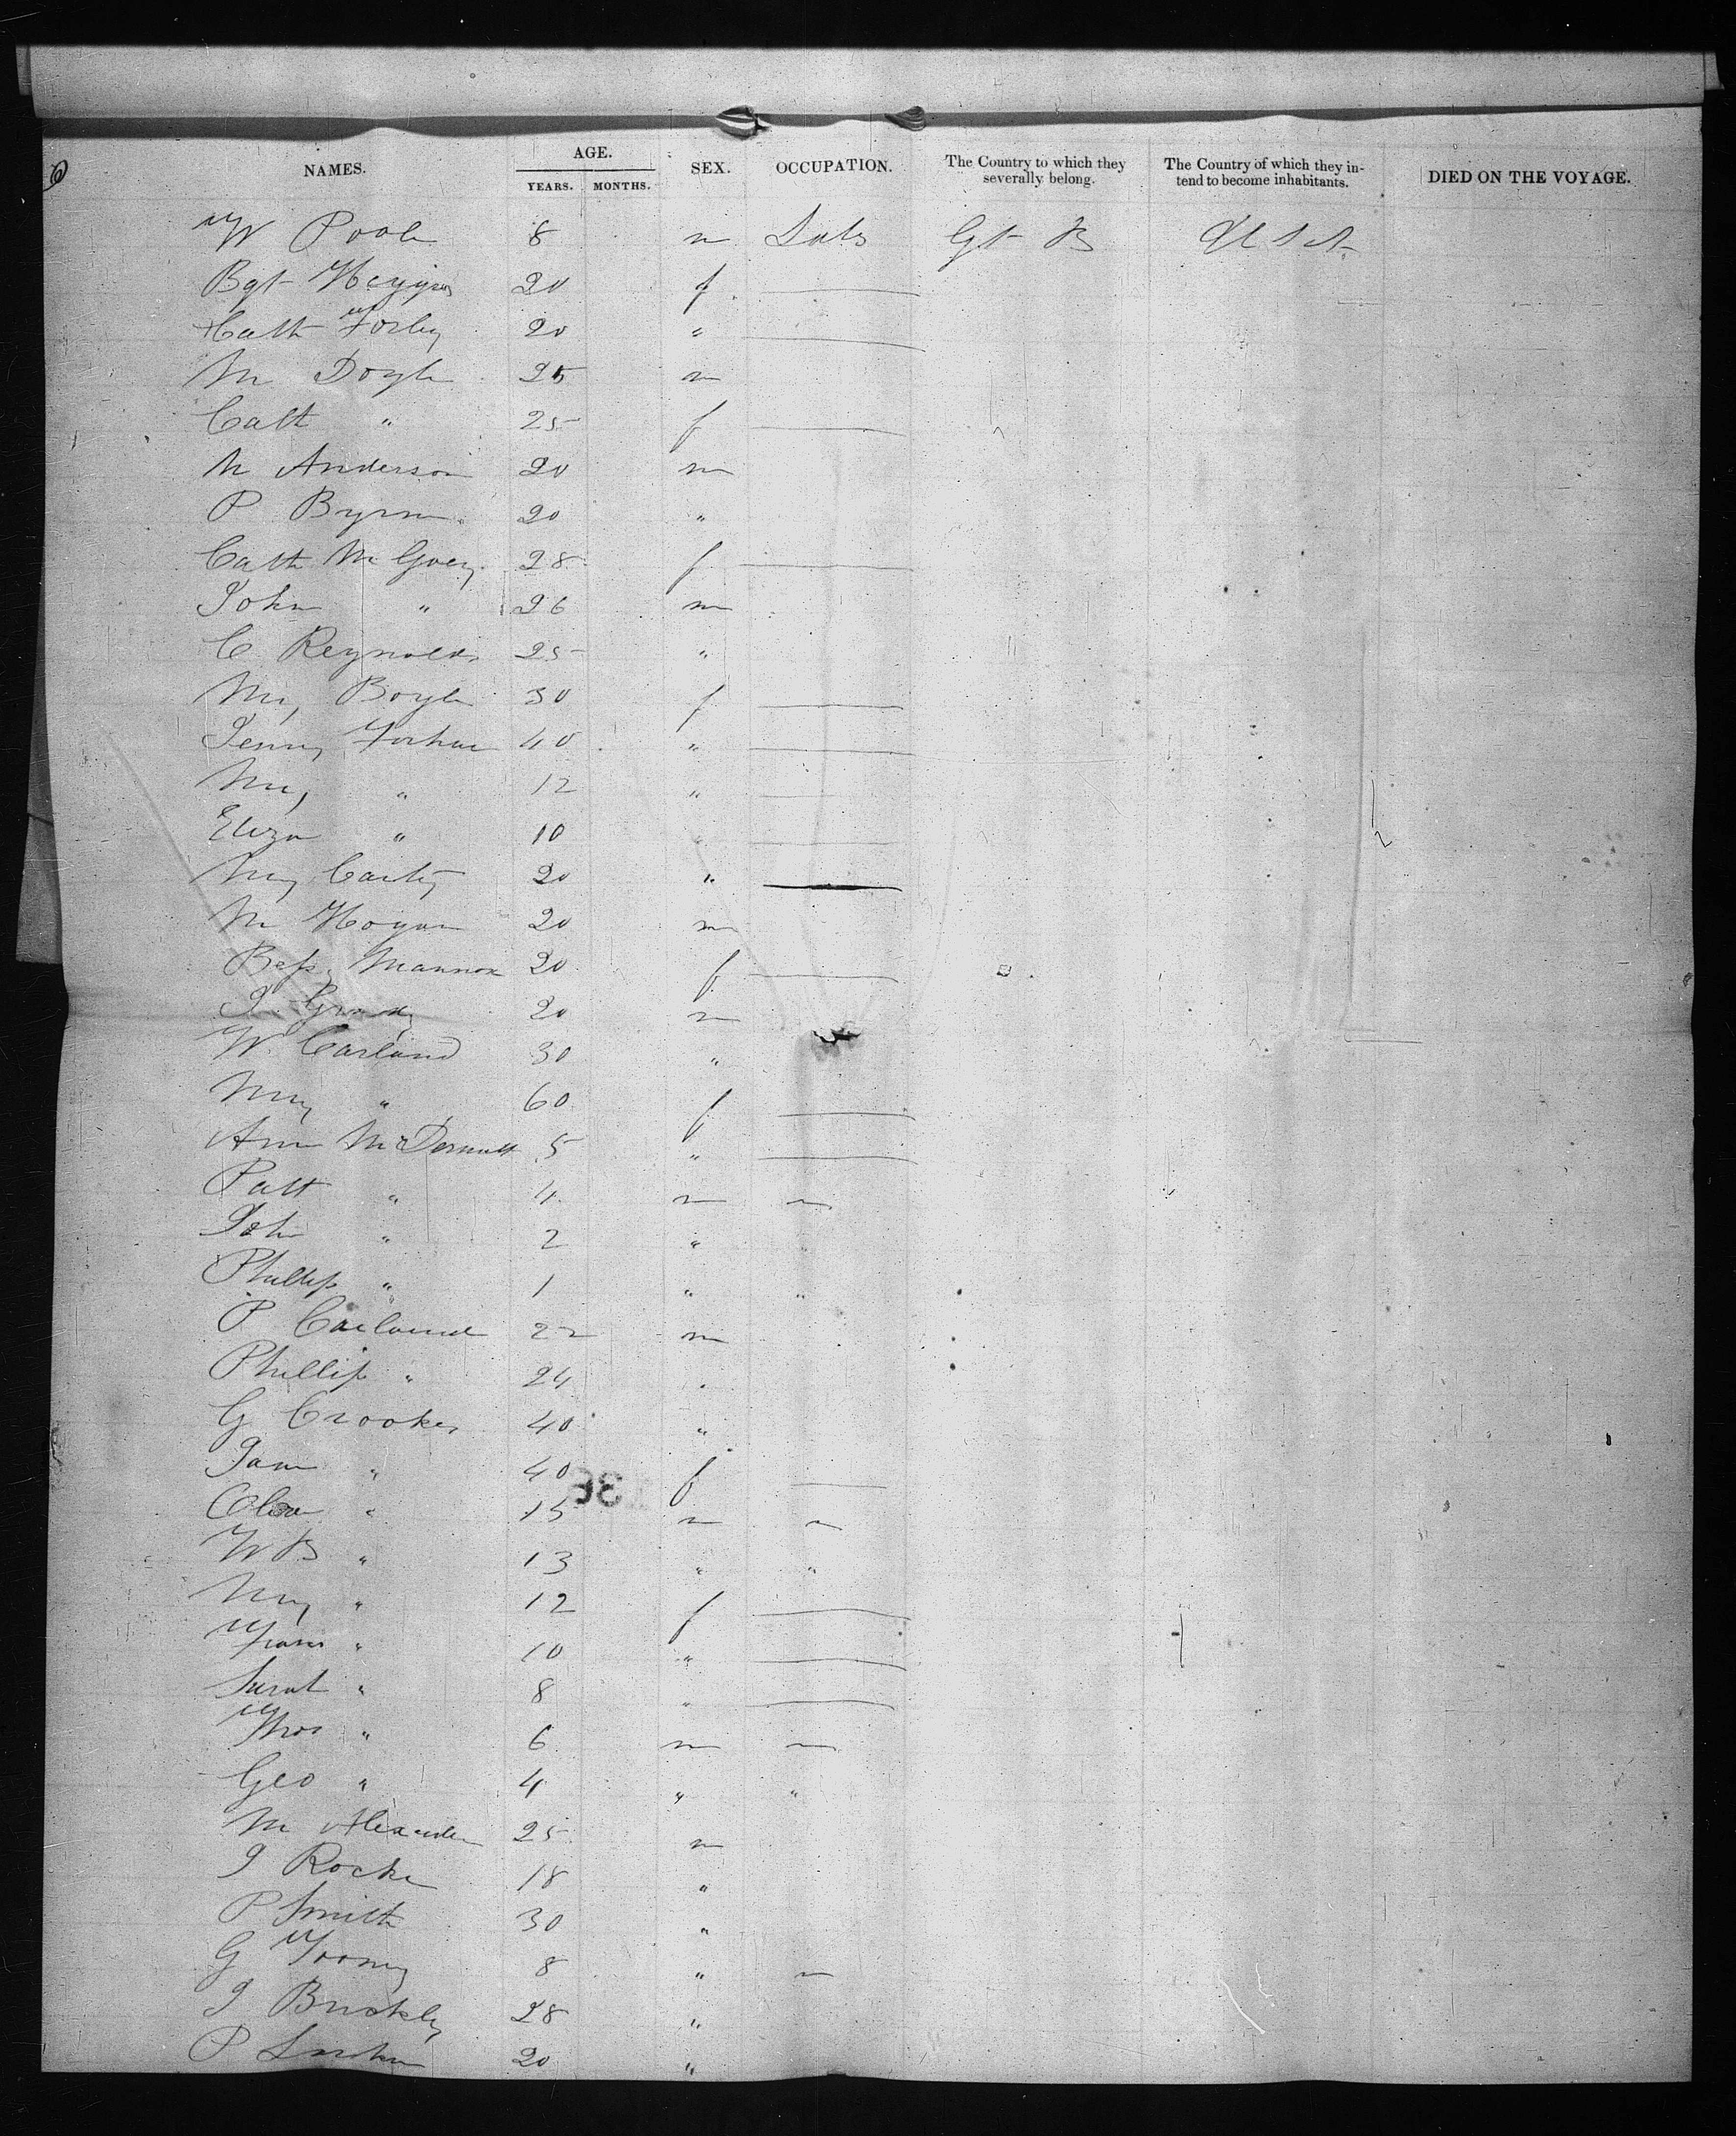 NAMES. AGE. SEX. OCCUPATION. The Country to which they severally belong. The Country of which they intend to become inhabitants. DIED ON THE VOYAGE.
YEARS. MONTHS.
W Poole 8 m Gt B U S A
Bgt 20 f
Cath 20 "
M Doyle 25 m
Cath " 25 f
M Anderson 20 m
P Byrne 20 "
Cath 28 f
John " 26 m
C Reynolds 25 "
My Boyle 30 f
Jenny 40 "
My " 12 "
Eliza " 10 "
My Carty 20 "
M Hogan 20 m
Bessy Mannon 20 f
J. Grady 20 m
W. Carland 30 "
My " 60 f
Ann McDermott 5 "
Patt " 4 m
John " 2 "
Phillip " 1 " "
P Carland 22 m
Phillip " 24 "
G Crooke 40 "
Jane " 40 f
" 15 m
W B " 13 " "
My " 12 f
Frans " 10 "
Sarah " 8 "
Thos " 6 m
Geo " 4 " "
M Alexander 25 m
J Roche 18 "
P Smith 30 "
G 8 "
J Buckly 28 "
P 20 "